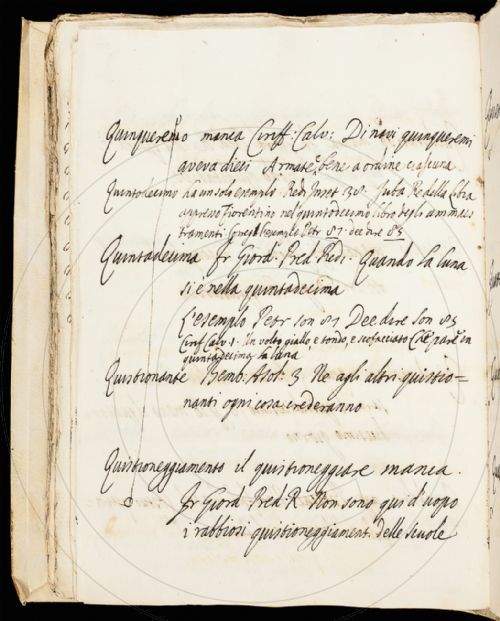 Quinqueremo manca Ciriff. Calv: Di navi quinqueremi
aveva dieci Armate, bene a ordine ciascuna
Quintodecimo ha un solo esempio. Redi Inset. 38. Juba Re della Libia
appresso Fiorentino nel quintodecimo libro degli ammaes
tramenti Con l'esempio Petr 81. dee dire 85
Quintadecima Fr Giord. Pred. Redi. Quando la luna
si è nella quintadecima
L'esemplo Petr son 81 Dee dire son 85
Cirif Calv. 1. Un volto giallo, e tondo, e scofacciato Che pare in
quintadecima la luna
Quistionante Bemb. Asol. 3 Ne agli altri quistio=
nanti ogni cosa crederanno
Quistioneggiamento il quistioneggiare manca.
Fr Giord Pred R. Non sono qui d'uopo
i rabbiosi quistioneggiament. delle scuole